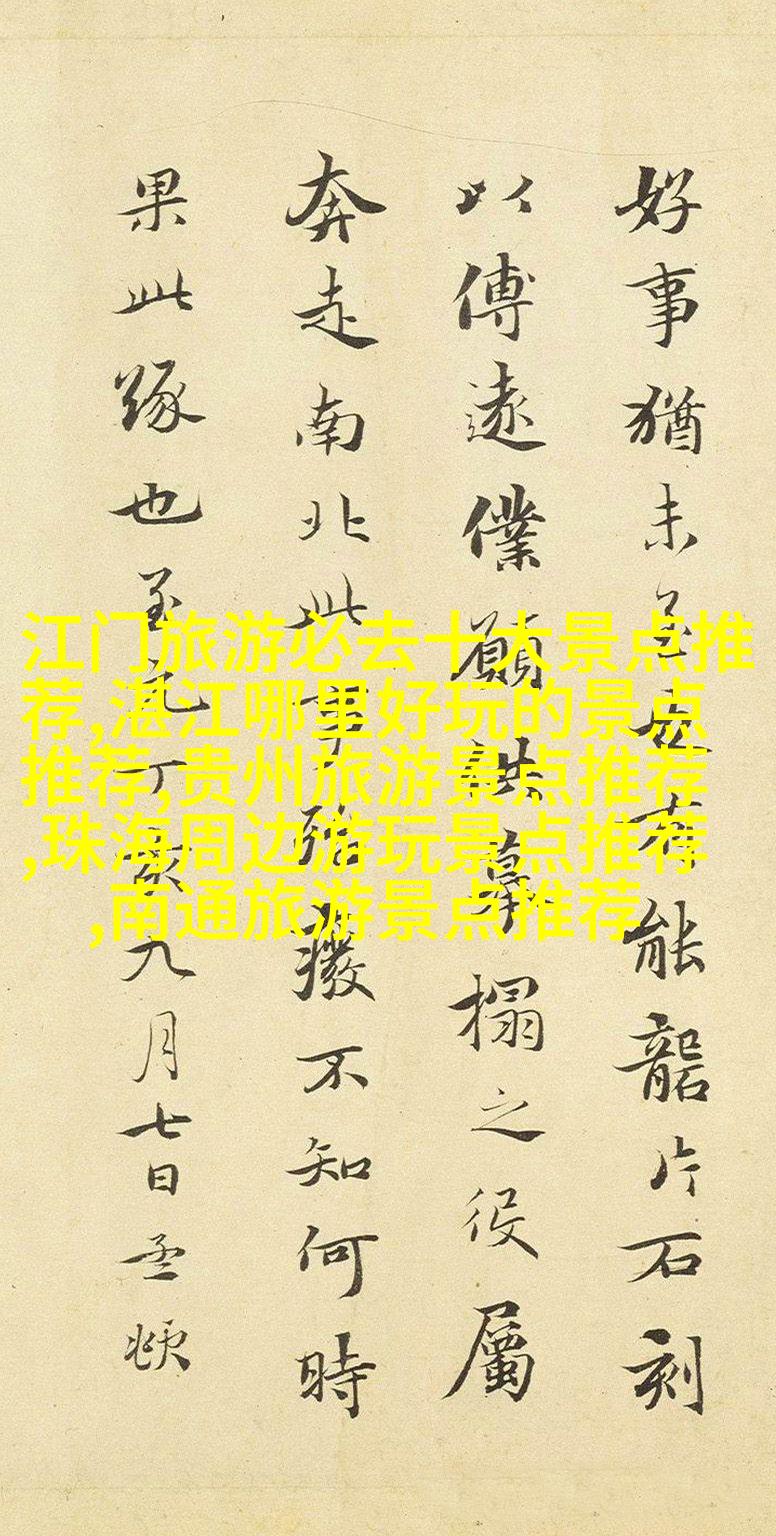 好事猶未至應有能龍片石刻
以傳遠僕願供摹搨之役屬
奔走南北此事殆癈不知何時
果此緣也至元丁亥九月七日孟頫
江门旅游必去十大景点推
荐,湛江哪里好玩的景点
推荐,贵州旅游景点推荐
,珠海周边游玩景点推荐
,南通旅游景点推荐